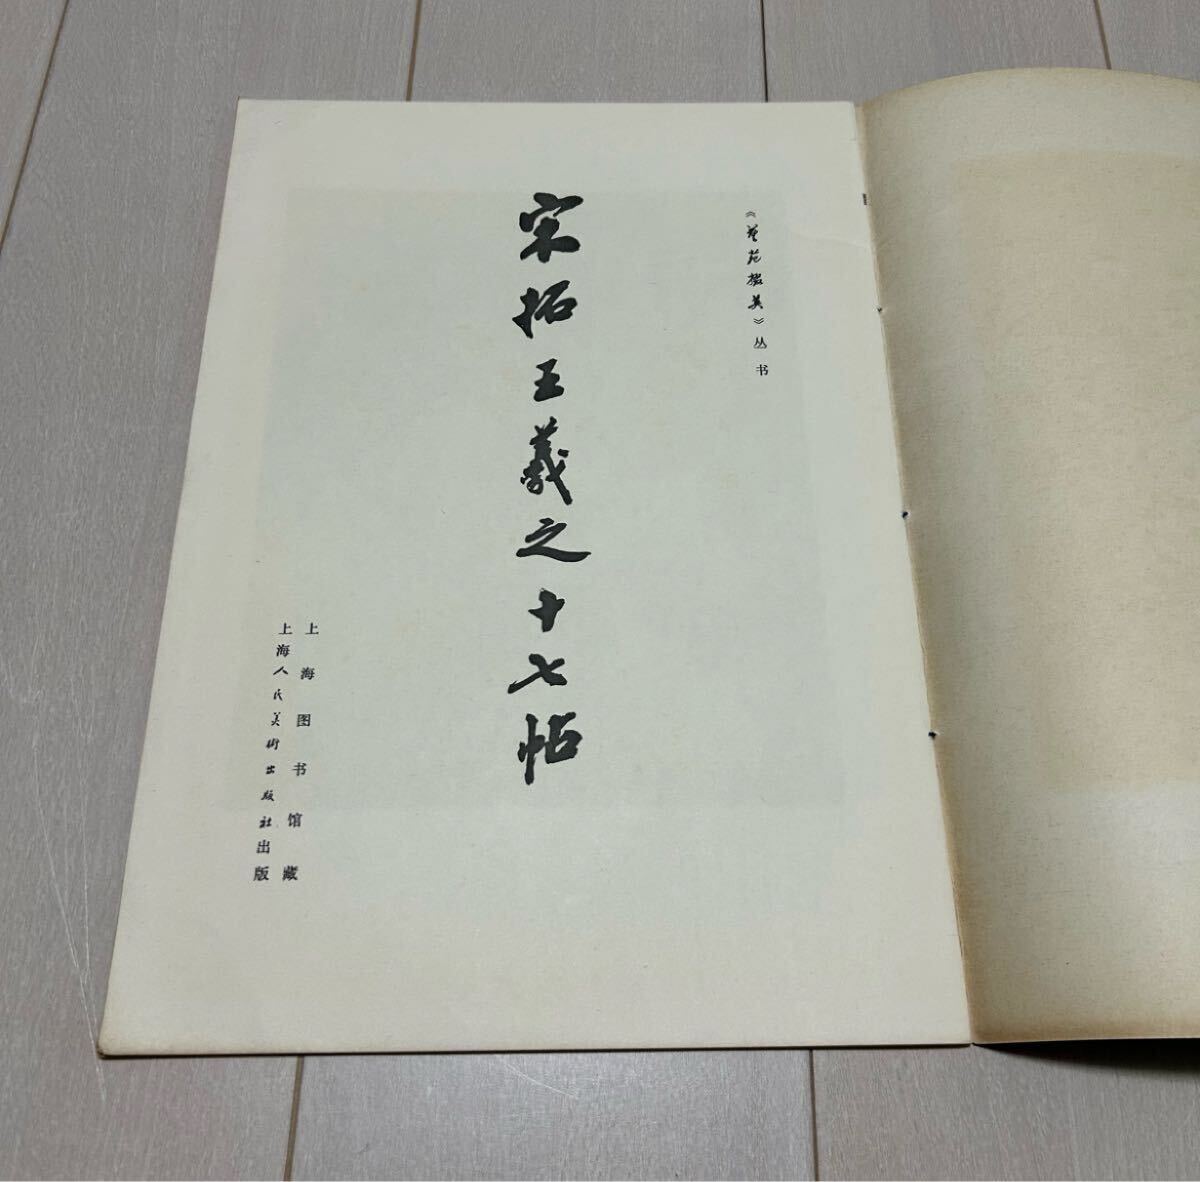 《艺苑掇英》丛书
宋拓王羲之十七帖
上海图书馆藏
上海人民美術出版社出版